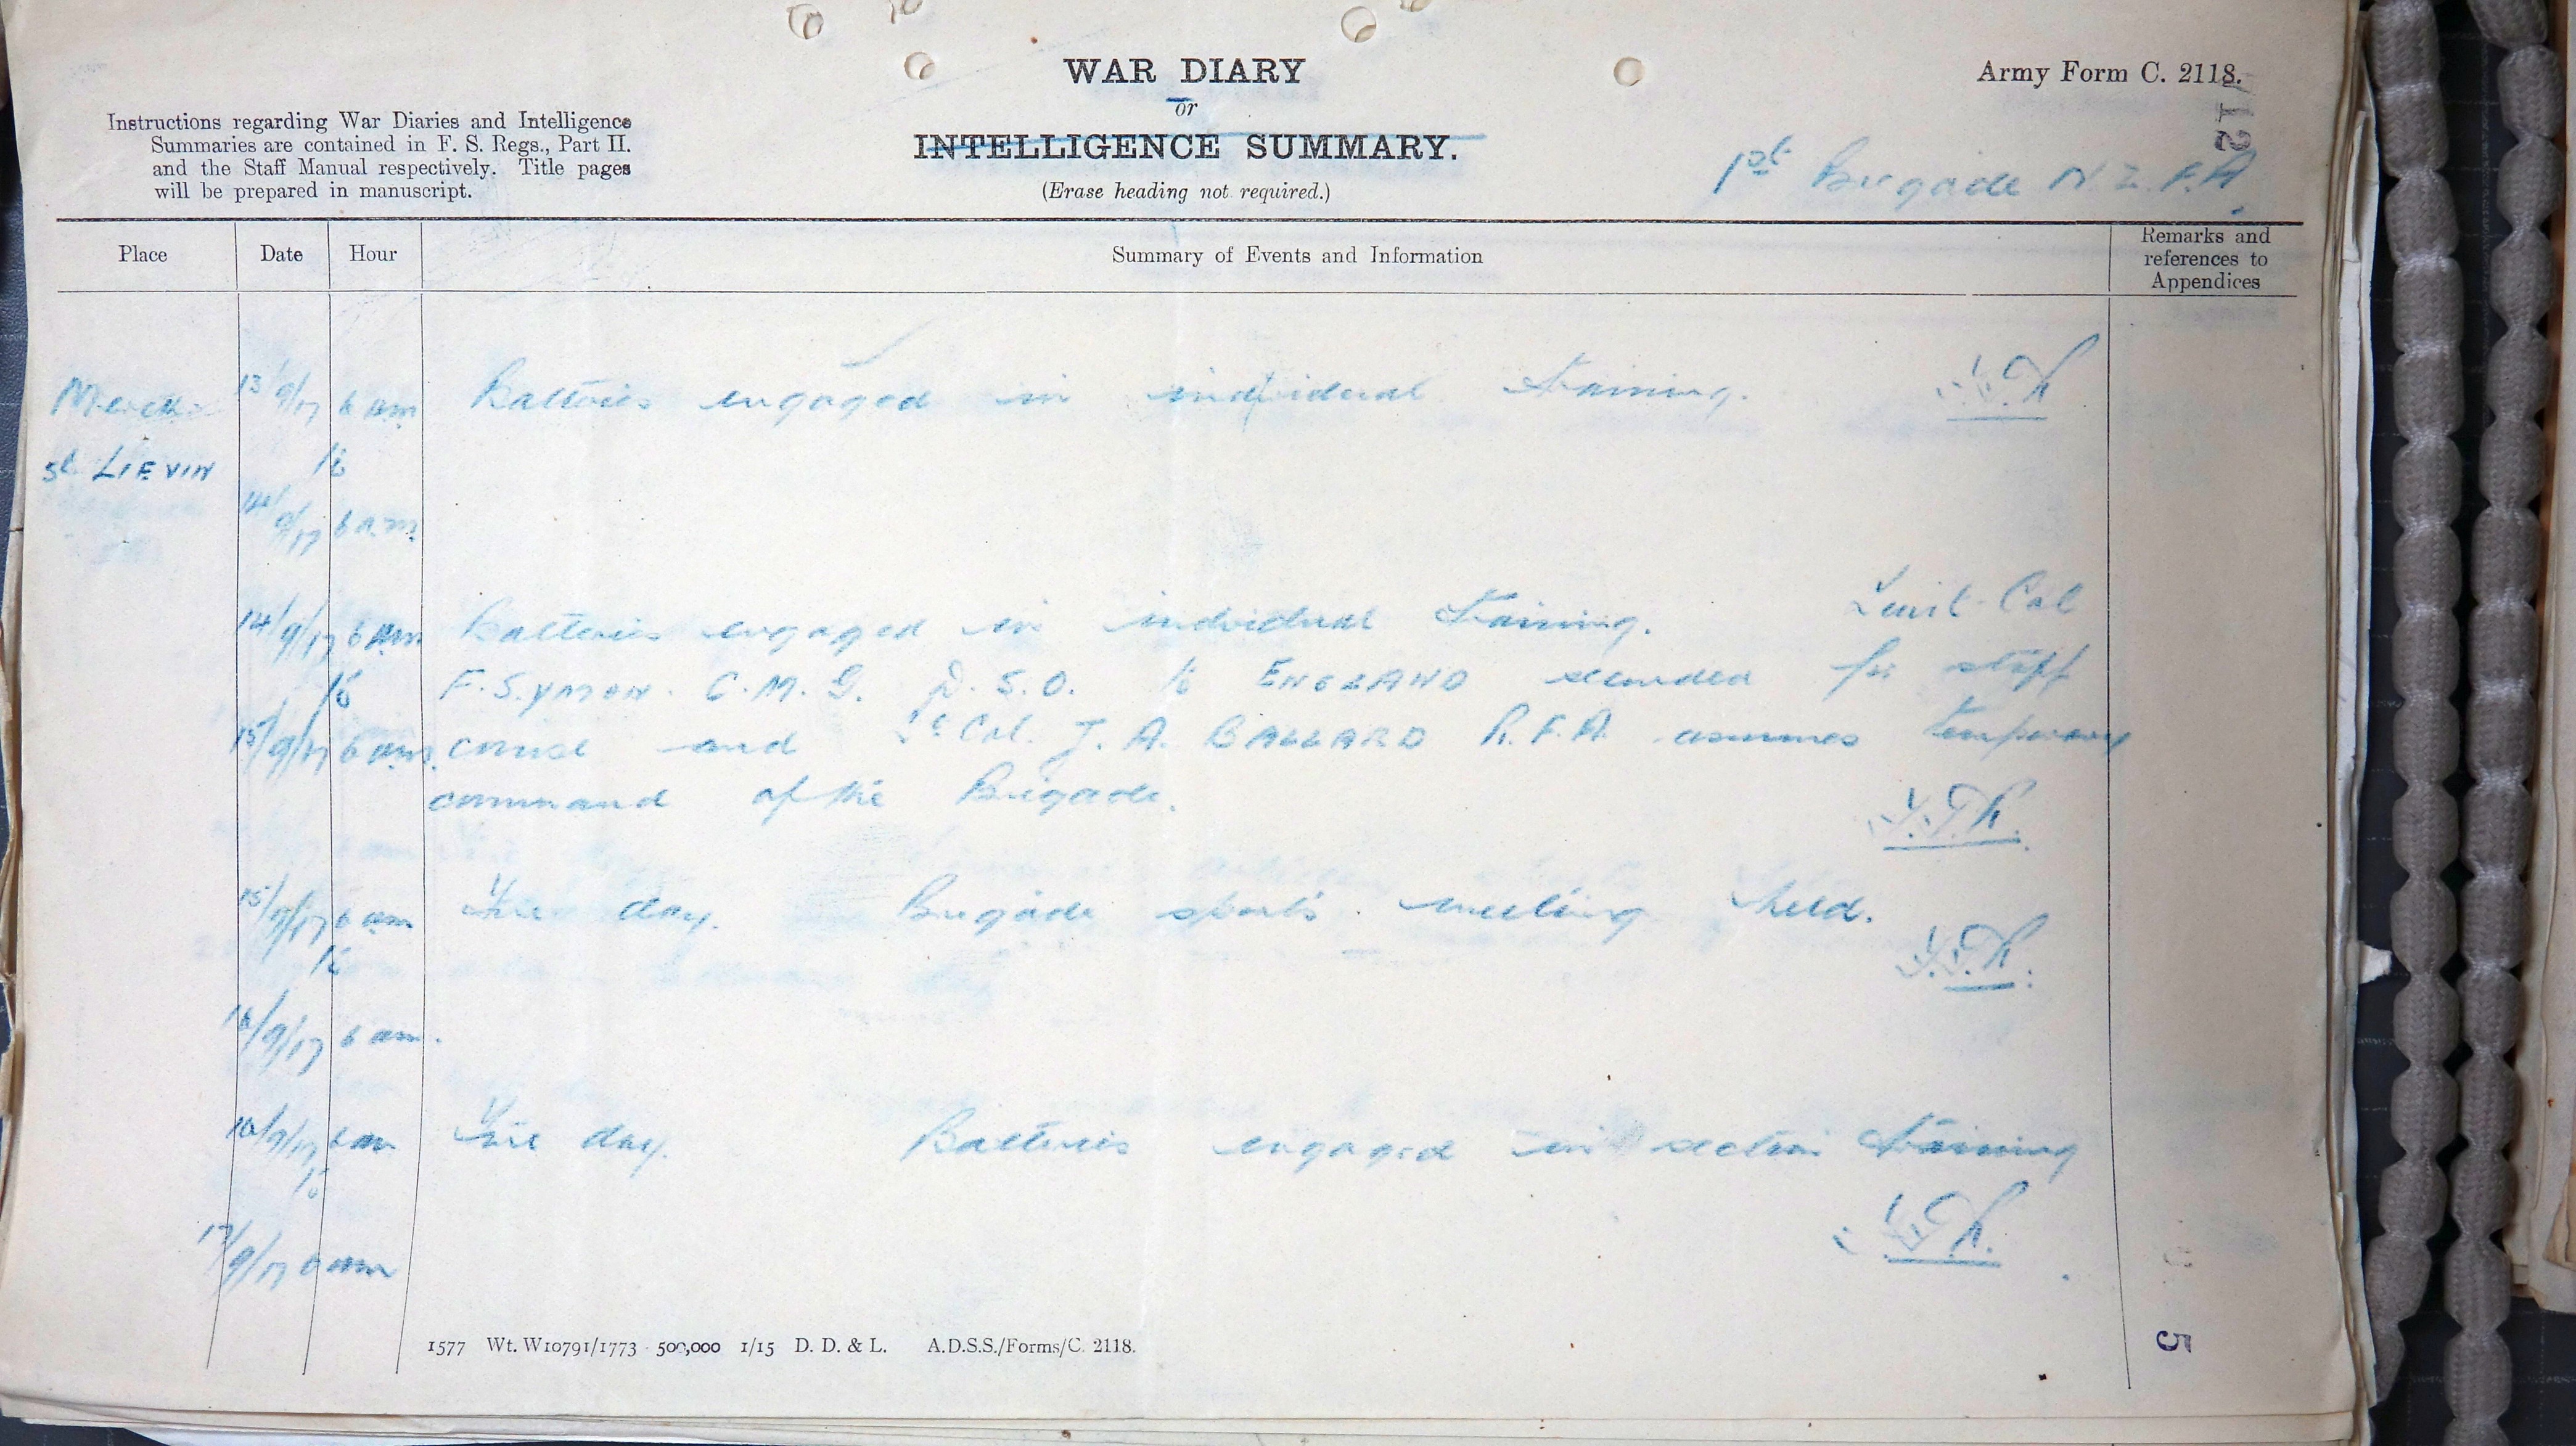 WAR DIARY
Army Form C. 2118.
or
INTELLIGENCE SUMMARY.
(Erase heading not required.)
Instructions regarding War Diaries and Intelligence
Summaries are contained in F. S. Regs., Part II.
and the Staff Manual respectively. Title pages
will be prepared in manuscript.
1st Brigade N.Z.F.A.
Place Date Hour Summary of Events and Information Remarks and references to Appendices
Merck 13/9/17 6 am Batteries engaged in individual training.
St LIEVIN to
14/9/17 6 am
14/9/17 6 am Batteries engaged in individual training. Lieut-Col
to F. SYMON. C.M.G. D.S.O. to ENGLAND seconded for staff
15/9/17 6 am. course and Lt Col. J. A. BALLARD R.F.A. assumes temporary
command of the Brigade.
15/9/17 6 am Fine day. Brigade sports meeting held.
to
16/9/17 6 am.
16/9/17 6 am Fine day. Batteries engaged in section training
to
17/9/17 6 am
1577 Wt. W10791/1773 500,000 1/15 D. D. & L. A.D.S.S./Forms/C. 2118.
5